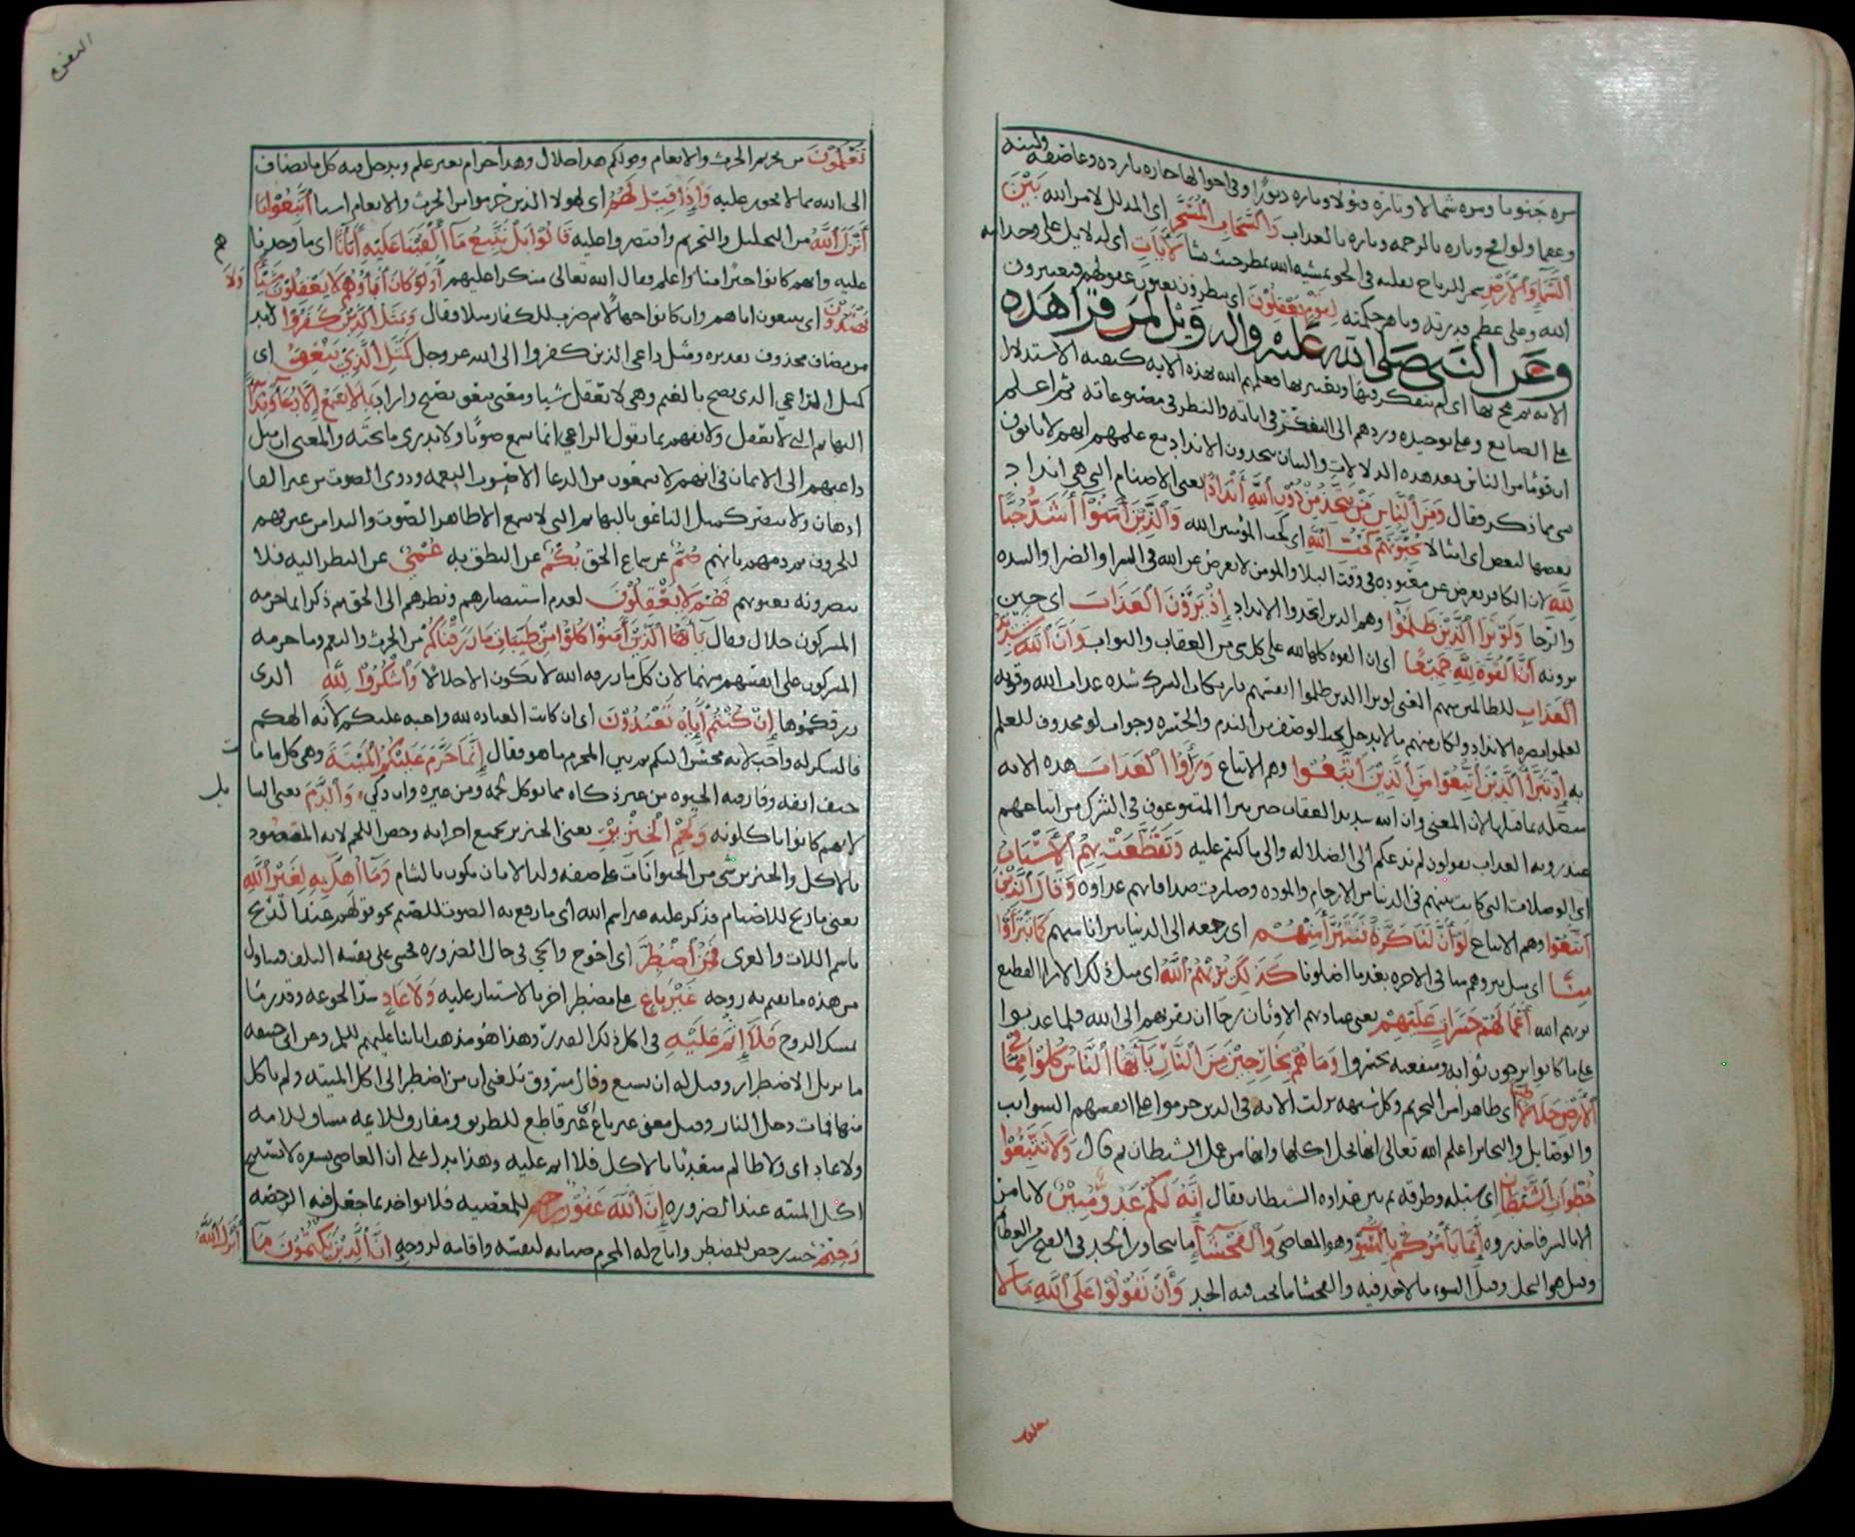 مره جنوبا ومره شمالا وتارة قبولا وتاره دبورا وفي احوالها حاره بارده وعاصفه ولينه
وعقما ولواقح وتاره بالرحمه وتاره بالعذاب وَالسَّحَابِ الْمُسَخَّرِ اى المذلل لامر الله بَيْنَ
السَّمَاءِ وَالْأَرْضِ الرياح تقلبه في الجو بمشيه الله يمطر حيث شا لَآيَاتٍ اى لدلايل على وحدانيه
الله وعلى عظم قدرته وباهر حكمته لِقَوْمٍ يَعْقِلُونَ اى ينظرون بعيون عقولهم فيعتبرون
وعن النبي صلى الله عليه واله ويل لمن قرا هذه
الايه ثم مج بها اى لم يتفكر فيها ويعتبر بها فعلمهم الله بهذه الايه كيفيه الاستدلال
على الصانع وعلى توحيده وردهم الى التفكر في اياته والنظر في مصنوعاته ثم اعلم
ان قوما من الناس بعد هذه الدلالات والبيان يتخذون الانداد مع علمهم انهم لا ياتون
بشي مما ذكر فقال وَمِنَ النَّاسِ مَنْ يَتَّخِذُ مِنْ دُونِ اللَّهِ أَنْدَادًا يعنى الاصنام التي هي انداد
بعضها لبعض اى امثالا يُحِبُّونَهُمْ كَحُبِّ اللَّهِ اى كحب المؤمنين الله وَالَّذِينَ آمَنُوا أَشَدُّ حُبًّا
لِلَّهِ لان الكافر يعرض عن معبوده في وقت البلا والمومن لا يعرض عن الله في السرا والضرا والشده
والرخا وَلَوْ يَرَى الَّذِينَ ظَلَمُوا وهم الذين اتخذوا الانداد إِذْ يَرَوْنَ الْعَذَابَ اى حين
يرونه أَنَّ الْقُوَّةَ لِلَّهِ جَمِيعًا اى ان القوه كلها لله على كل شى من العقاب والثواب وَأَنَّ اللَّهَ شَدِيدُ
الْعَذَابِ للظالمين المعنى لو يرا الذين ظلموا انفسهم بارتكاب الشرك شده عذاب الله وقوته
لعلموا مضره الانداد ولكان منهم ما لا يدخل تحت الوصف من الندم والحسره وجواب لو محذوف للعلم
به إِذْ تَبَرَّأَ الَّذِينَ اتُّبِعُوا مِنَ الَّذِينَ اتَّبَعُوا وهم الاتباع وَرَأَوُا الْعَذَابَ هذه الايه
متصله بما قبلها لان المعنى وان الله شديد العقاب حين تبرا المتبوعون في الشرك من اتباعهم
عند رويه العذاب يقولون لم ندعكم الى الضلاله والى ما كنتم عليه وَتَقَطَّعَتْ بِهِمُ الْأَسْبَابُ
اى الوصلات التي كانت بينهم في الدنيا من الارحام والموده وصارت صداقاتهم عداوه وَقَالَ الَّذِينَ
اتَّبَعُوا وهم الاتباع لَوْ أَنَّ لَنَا كَرَّةً فَنَتَبَرَّأَ مِنْهُمْ اى رجعه الى الدنيا تبرانا منهم كَمَا تَبَرَّءُوا
مِنَّا اى مثل تبروهم منا في الاخره بعد ما اضلونا كَذَلِكَ يُرِيهِمُ اللَّهُ اى مثل ذلك الارا الفظيع
يريهم الله أَعْمَالَهُمْ حَسَرَاتٍ عَلَيْهِمْ يعنى عبادتهم الاوثان رجا ان تقربهم الى الله فلما عذبوا
على ما كانوا يرجون ثوابه ومنفعته تحسروا وَمَا هُمْ بِخَارِجِينَ مِنَ النَّارِ يَا أَيُّهَا النَّاسُ كُلُوا مِمَّا فِي
الْأَرْضِ حَلَالًا طَيِّبًا اى طاهرا من التحريم وكل شبهه نزلت الايه في الذين حرموا على انفسهم السوايب
والوصايل والبحاير اعلم الله تعالى انها يحل اكلها وانها من عمل الشيطان ثم قال وَلَا تَتَّبِعُوا
خُطُوَاتِ الشَّيْطَانِ اى سبله وطرقه ثم بين عداوه الشيطان فقال إِنَّهُ لَكُمْ عَدُوٌّ مُبِينٌ لانه من
الابالسه فاحذروه إِنَّمَا يَأْمُرُكُمْ بِالسُّوءِ وهو المعاصى وَالْفَحْشَاءِ ما يتجاوز الحد في القبح من العظائم
وقيل هو البخل وقيل السوء ما لا حد فيه والفحشا ما يجب فيه الحد وَأَنْ تَقُولُوا عَلَى اللَّهِ مَا لَا
تعلمون
البقره
تَعْلَمُونَ من تحريم الحرث والانعام وقولكم هذا حلال وهذا حرام بغير علم ويدخل فيه كل ما يضاف
الى الله مما لا يجوز عليه وَإِذَا قِيلَ لَهُمُ اى لهولا الذين حرموا من الحرث والانعام اشيا اتَّبِعُوا مَا
أَنْزَلَ اللَّهُ من التحليل والتحريم واقتصروا عليه قَالُوا بَلْ نَتَّبِعُ مَا أَلْفَيْنَا عَلَيْهِ آبَاءَنَا اى ما وجدنا
عليه وانهم كانوا خيرا منا واعلم فقال الله تعالى منكرا عليهم أَوَلَوْ كَانَ آبَاؤُهُمْ لَا يَعْقِلُونَ شَيْئًا وَلَا
يَهْتَدُونَ اى يتبعون اباهم وان كانوا جهالا ثم ضرب للكفار مثلا فقال وَمَثَلُ الَّذِينَ كَفَرُوا لابد
من مضاف محذوف تقديره ومثل داعي الذين كفروا الى الله عز وجل كَمَثَلِ الَّذِي يَنْعِقُ اى
كمثل الراعي الذى يصيح بالغنم وهي لا تعقل شيا ومعنى ينعق يصيح واراد بِمَا لَا يَسْمَعُ إِلَّا دُعَاءً وَنِدَاءً
البهايم التي لا تعقل ولا تفهم ما يقول الراعي انما تسمع صوتا ولا تدري ما تحته والمعنى ان مثل
داعيهم الى الايمان في انهم لا يسمعون من الدعا الا صوت النغمه ودوى الصوت من غير القا
اذهان ولا تبصر كمثل الناعق بالبهايم التي لا تسمع الا ظاهر الصوت والندا من غير فهم
للحروف ثم ذمهم بانهم صُمٌّ عن سماع الحق بُكْمٌ عن النطق به عُمْيٌ عن النظر اليه فلا
يبصرونه بعيونهم فَهُمْ لَا يَعْقِلُونَ لعدم استبصارهم ونظرهم الى الحق ثم ذكر ان ما حرمه
المشركون حلال وقال يَا أَيُّهَا الَّذِينَ آمَنُوا كُلُوا مِنْ طَيِّبَاتِ مَا رَزَقْنَاكُمْ من الحرث والنعم وما حرمه
المشركون على انفسهم منهما لان كل ما رزقه الله لا يكون الا حلالا وَاشْكُرُوا لِلَّهِ الذى
رزقكموها إِنْ كُنْتُمْ إِيَّاهُ تَعْبُدُونَ اى ان كانت العباده لله واجبه عليكم لانه الهكم
فالشكر له واجب لانه محسن اليكم ثم بين المحرم ما هو فقال إِنَّمَا حَرَّمَ عَلَيْكُمُ الْمَيْتَةَ وهي كل ما مات
حتف انفه وفارقته الحيوه من غير ذكاه مما يوكل لحمه ومن غيره وان ذكي وَالدَّمَ يعنى السايل
لانهم كانوا ياكلونه وَلَحْمَ الْخِنْزِيرِ يعنى الخنزير بجميع اجزايه وخص اللحم لانه المقصود
بالاكل والخنزير شي من الحيوانات على صفه ولد الاتان يكون بالشام وَمَا أُهِلَّ بِهِ لِغَيْرِ اللَّهِ
يعنى ما ذبح للاصنام فذكر عليه غير اسم الله اى ما رفع به الصوت للصنم نحو قولهم عند الذبح
باسم اللات والعزى فَمَنِ اضْطُرَّ اى احوج والجي في حال الضروره فخشى على نفسه التلف فتناول
من هذه ما يقيم به روحه غَيْرَ بَاغٍ على مضطر اخر بالاستيثار عليه وَلَا عَادٍ سد الجوعه وقدر ما
يمسك الروح فَلَا إِثْمَ عَلَيْهِ في اكل ذلك القدر وهذا هو مذهب ابائنا عليهم السلم وعن ابي حنيفه
ما يزيل الاضطرار وقيل له ان يشبع وقال مسروق بلغني ان من اضطر الى اكل الميته ولم ياكل
منها فمات دخل النار وقيل معنى غير باغ اى غير قاطع للطريق ومفارق للايمه مشاق للامه
ولا عاد اى ولا ظالم متعديا بالاكل فلا اثم عليه وهذا يدل على ان العاصي بسفره لا يستبيح
اكل الميته عند الضروره إِنَّ اللَّهَ غَفُورٌ رَحِيمٌ للمعصيه فلا يواخذ بما جعل فيه الرخصه
رَحِيمٌ حيث رخص للمضطر واباح له المحرم صيانه لنفسه واقامه لروحه إِنَّ الَّذِينَ يَكْتُمُونَ مَا أَنْزَلَ اللَّهُ